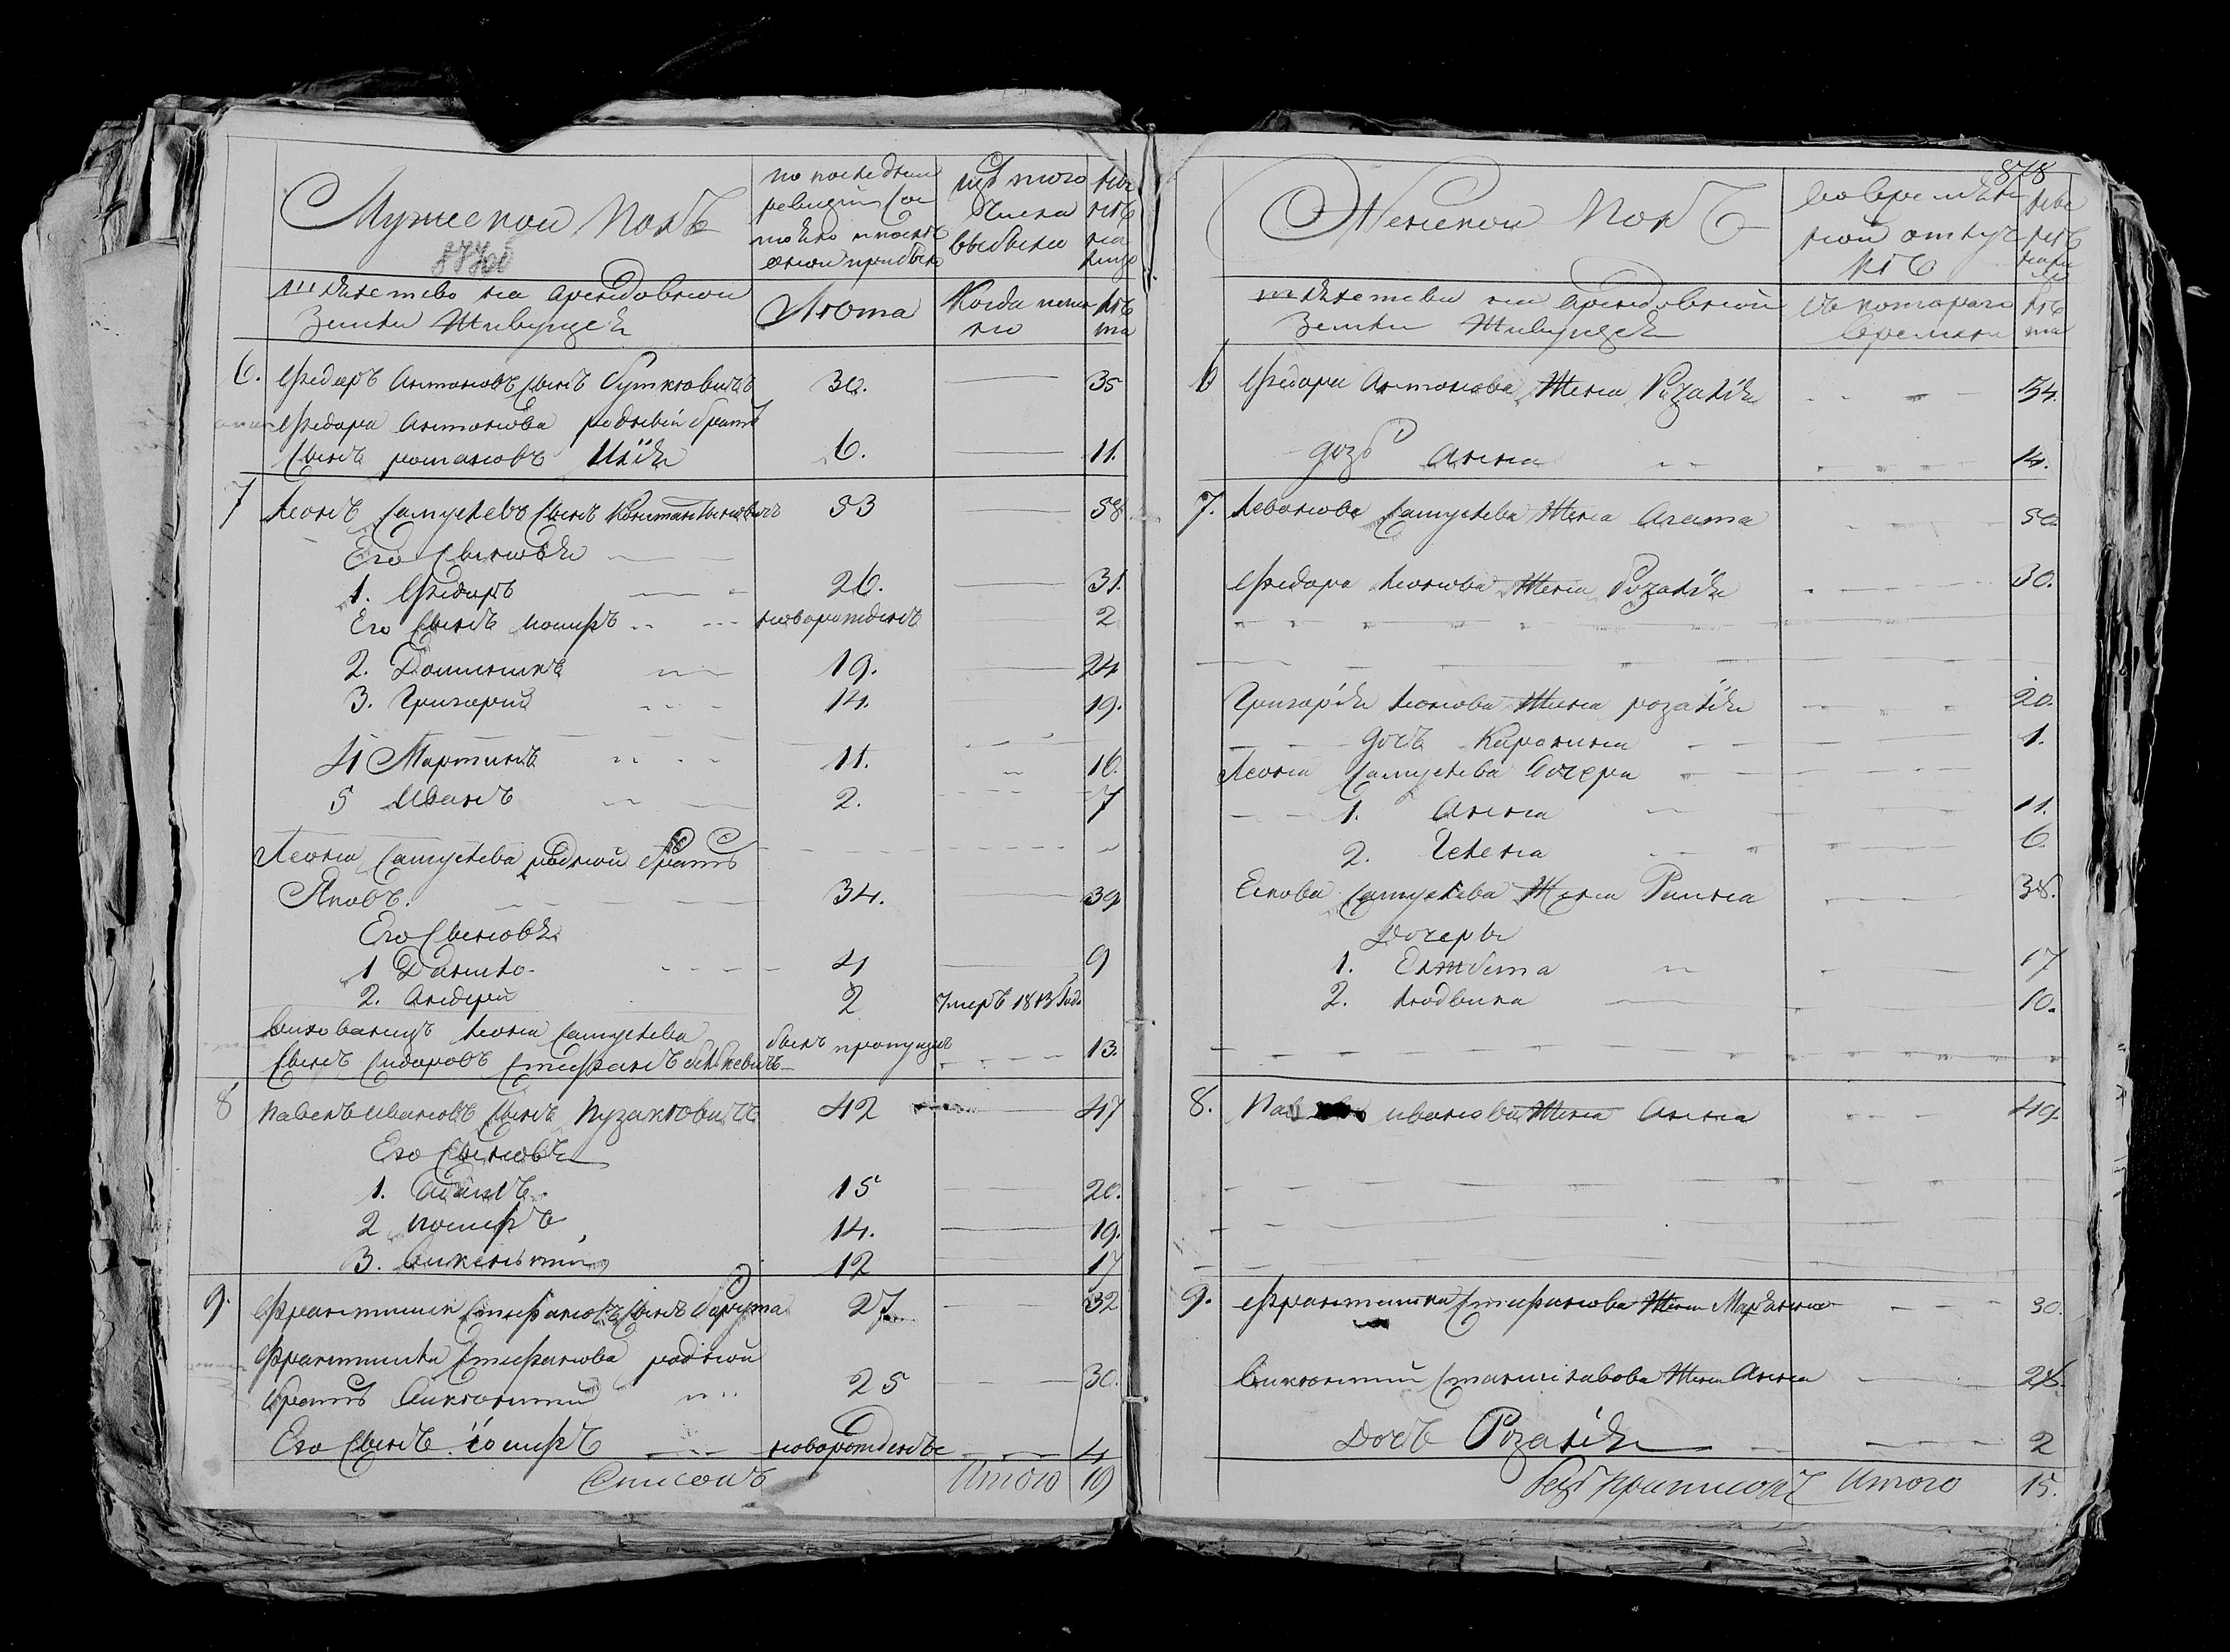 Мужеской Полъ
877об
по последней
ревизіи со
тояло и после
оной прибыло
изъ того
Числа
выбыло
ныне
на
лицо
шляхетство на арендовной
Земли Живущея
Лѣта
Когда имен
но
лѣ
та
6. Федоръ Антоновъ сынъ Буткевичъ 30. 35
Федора Антонова родный братъ
сынъ романовъ Илія 6. 11.
7 Леонъ Самуелевъ сынъ Константиновичъ 53 58
Его Сыновья
1. Федоръ 26. 31.
Его Сынъ иосифъ новорожденъ 2
2. Доминикъ 19. 24
3. Григорий 14. 19.
4 Мартинъ 11. 16.
5 Иванъ 2. 7
Леона Самуелева родной братъ
Яковъ. 34. 39
Его Сыновья
1 Данило 4 9
2. Андрей 2 Умеръ 1813 Года
Леона Самуелева
сынъ Сидоровъ Стефанъ былъ пропущенъ 13.
8 павелъ ивановъ сынъ Пузакновичъ 42 47
Его Сыновья
1. Адамъ 15 20.
2 иосифъ 14. 19.
3. Викентий 12 17
9. Францишек Стефановъ сынъ Барута 27 32
Францишка Стефанова родной
братъ Викентий 25 30.
Его Сынъ іосифъ новорожденъ 4
Списалъ Итого 19
878
Женской Полъ
во времян
ной отлуч
кѣ
ныне
на ли
цо
шляхетства на арендовной
Земли Живущея
съ котораго
времяни
лѣ
та
6 Федора Антонова Жена Розалія 34.
дочь Анна 14.
7. Леонова Самуелева Жена Агата 50.
Федора Леонова Жена Розалія 30.
Григорія Леонова Жена розалія 20.
дочь Каролина 1.
Леона Самуелева дочери
1. Анна 11.
2. Гелена 6.
Якова Самуелева Жена Раина 38.
Дочеры
1. Елжбета 17
2. Людвика 10.
8. иванова Жена Анна 49.
9. Францишка Стефанова Жена Маріанна 30.
Викентий Станиславова Жена Анна 28.
Дочь Розалія 2
Безъ приписокъ Итого 15.